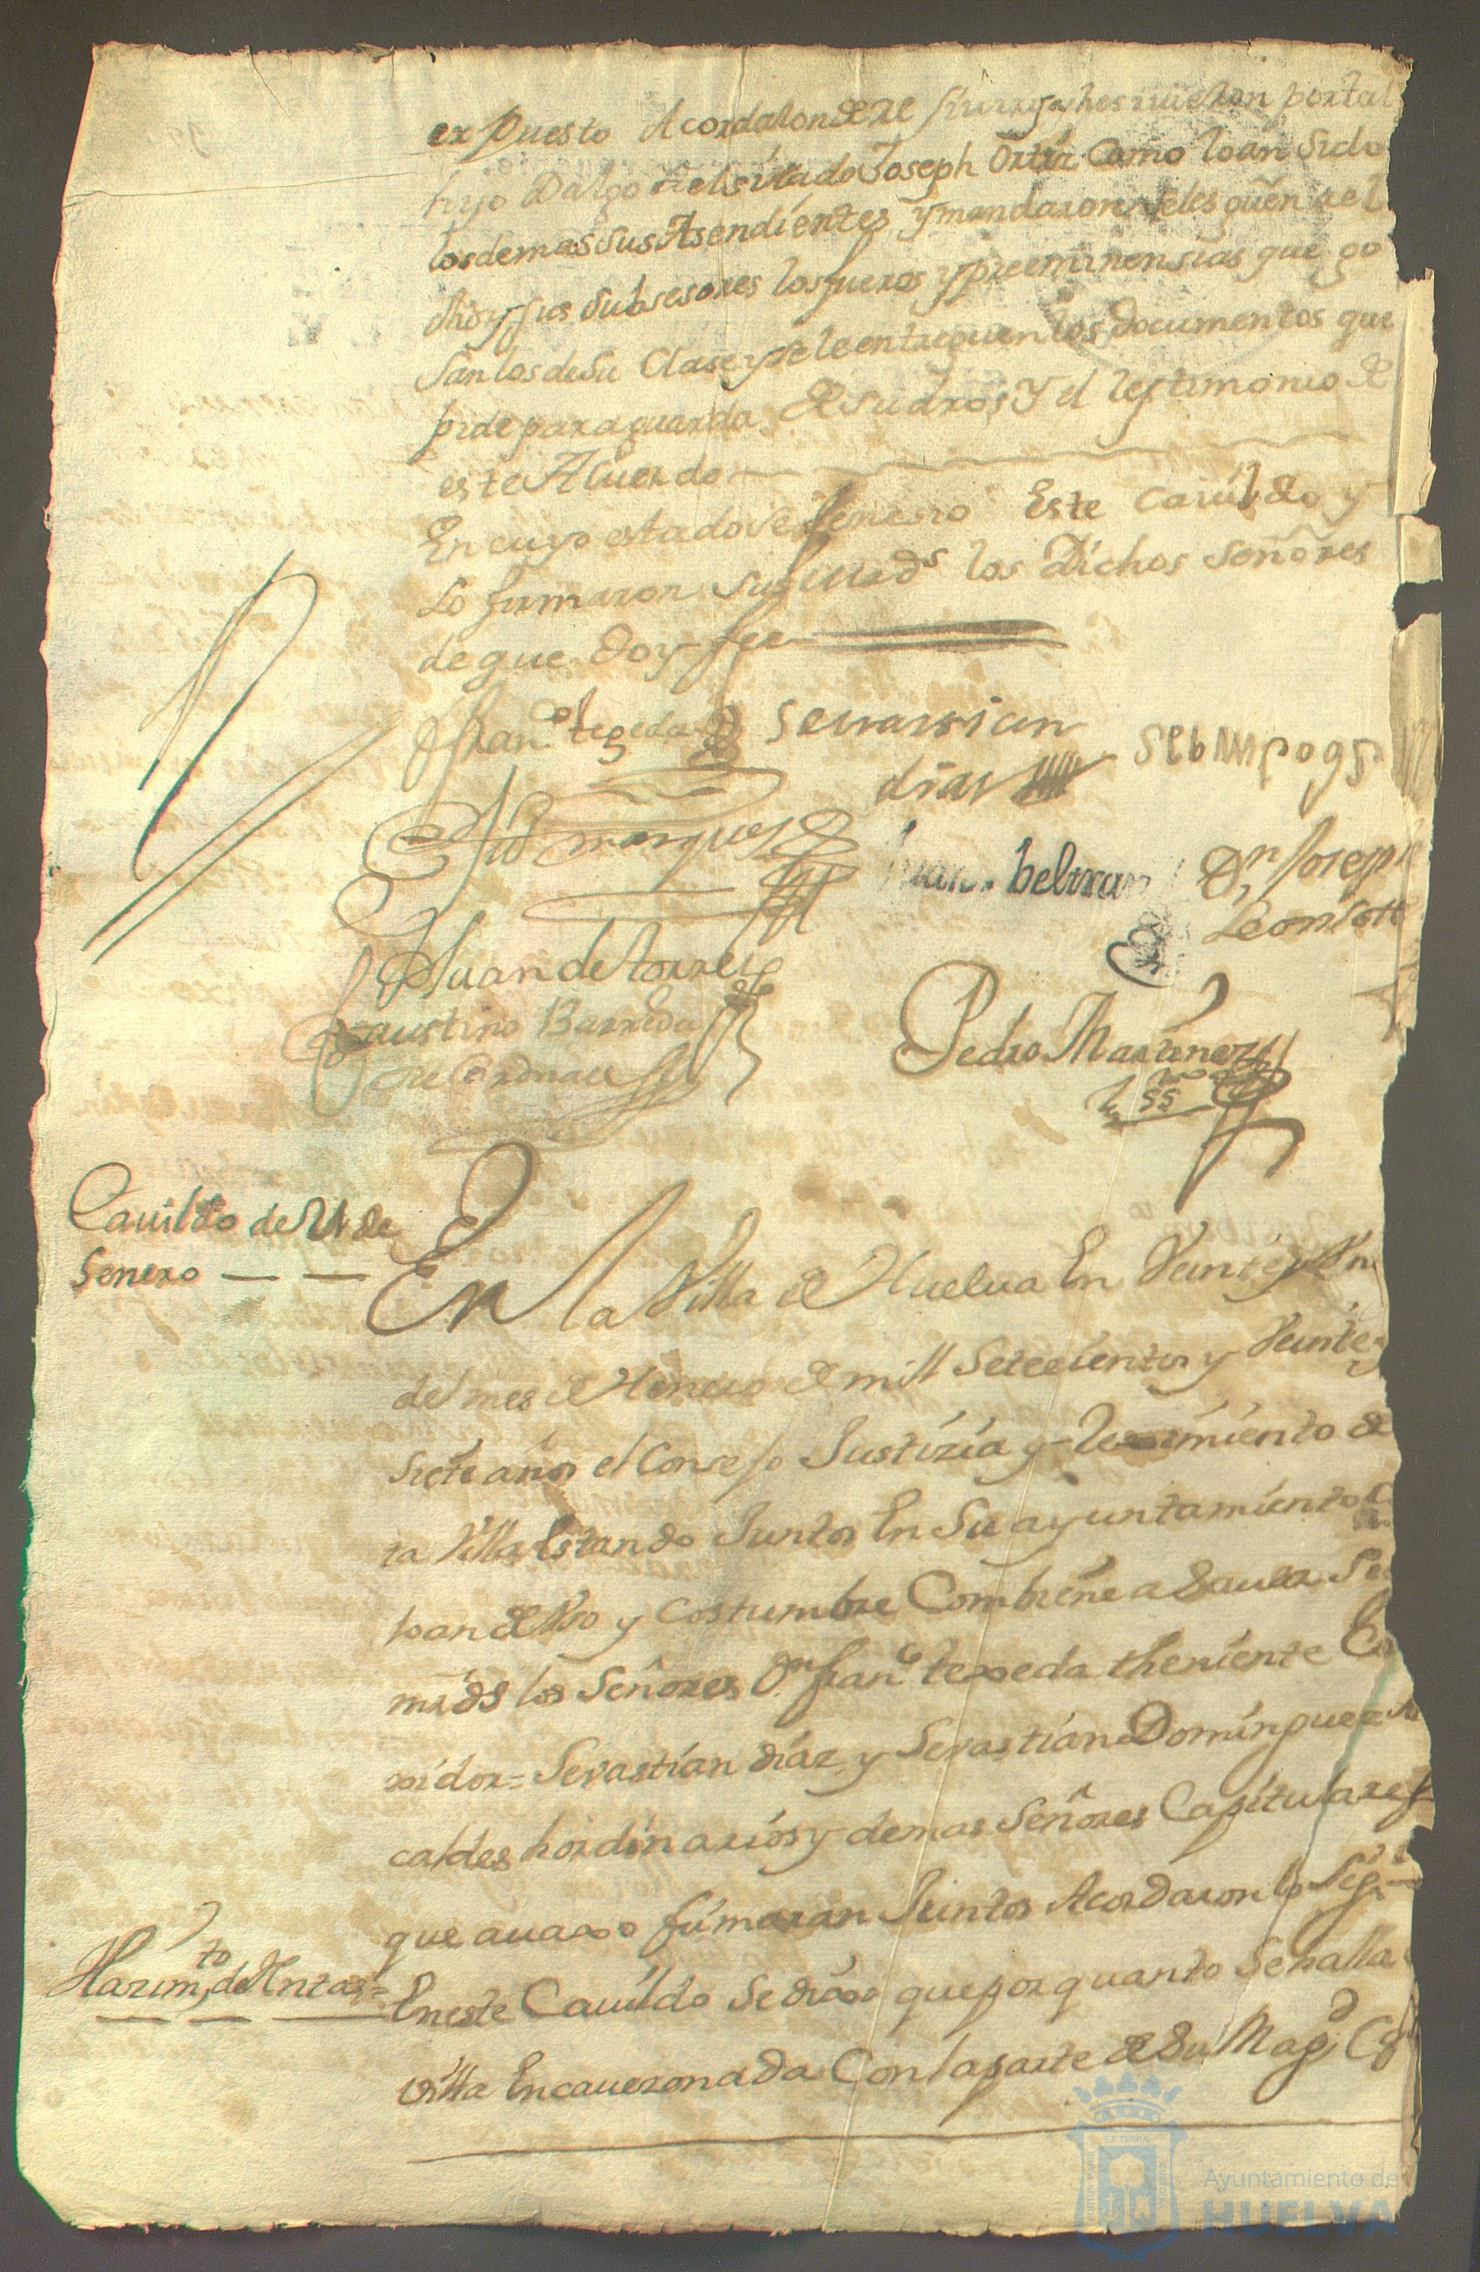 expuesto Acordaron de se por tal
hijo Dalgo el sitado Joseph Ortiz Como lo an Sido
los demas sus Asendientes y mandaron se les guēn a el
dho y sus subsesores los fueros y preeminensias que go
san los de su Clase y se le entreguen los documentos que
pide para guarda de su dros y el testimonio de
este Acuerdo
En cuyo estado se feneсio Este Cavildo y
Lo firmaron sus mrds los Dichos Señores
de que doy fee
Franco tegeda
Sevastian
dias
marques
Juan beltran
Dn Joseph
Leon
Juan de torres
Faustino Barreda
Pedro Martinez
Cavildo de 21 de
Henero
En la Villa de Huelva En Veinte y Un
del mes de Henero de mill Setecientos y Veinte y
Siete años el Consejo Justizia y Reximiento de
ta Villa Estando Juntos En Su ayuntamiento
lo an de Uso y Costumbre Combiene a Saver Su
mrds los Señores Dn Franco texeda theniente Co
xidor = Sevastian diaz y Sevastian Dominguez
caldes hordinarios y demas Señores Capitulares
que avaxo firmaran Juntos Acordaron lo Sigte
Hazimto de Rntas =
En este Cavildo Se dixo que por quanto Se halla
villa Encavezonada Con la parte de Su Magd
Ayuntamiento de
HUELVA